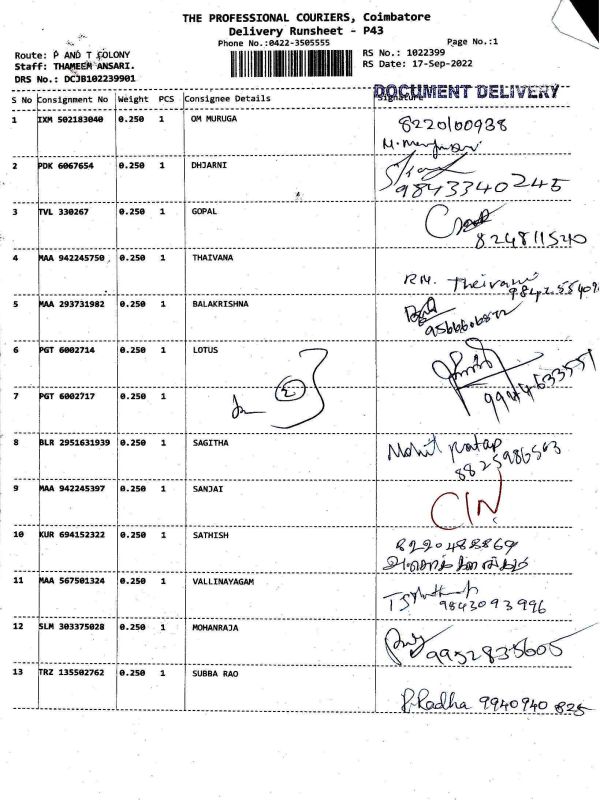 THE PROFESSIONAL COURIERS, Coimbatore
Delivery Runsheet - P43
Phone No.:0422-3505555
Page No.:1
Route: P AND T COLONY
RS No.: 1022399
Staff: THAMEEM ANSARI.
RS Date: 17-Sep-2022
DRS No.: DCJB102239901
DOCUMENT DELIVERY
S No Consignment No Weight PCS Consignee Details Signature
1 IXM 502183040 0.250 1 OM MURUGA
8220100938
2 PDK 6067654 0.250 1 DHJARNI
9843340245
3 TVL 330267 0.250 1 GOPAL
824811520
4 MAA 942245750 0.250 1 THAIVANA
RM. Theivani
5 MAA 293731982 0.250 1 BALAKRISHNA
6 PGT 6002714 0.250 1 LOTUS
7 PGT 6002717 0.250 1
9944633551
8 BLR 2951631939 0.250 1 SAGITHA
Mohit Pratap
8825986563
9 MAA 942245397 0.250 1 SANJAI
CIN
10 KUR 694152322 0.250 1 SATHISH
8220488869
11 MAA 567501324 0.250 1 VALLINAYAGAM
9843093996
12 SLM 303375028 0.250 1 MOHANRAJA
9952835605
13 TRZ 135502762 0.250 1 SUBBA RAO
P. Radha 9940940825